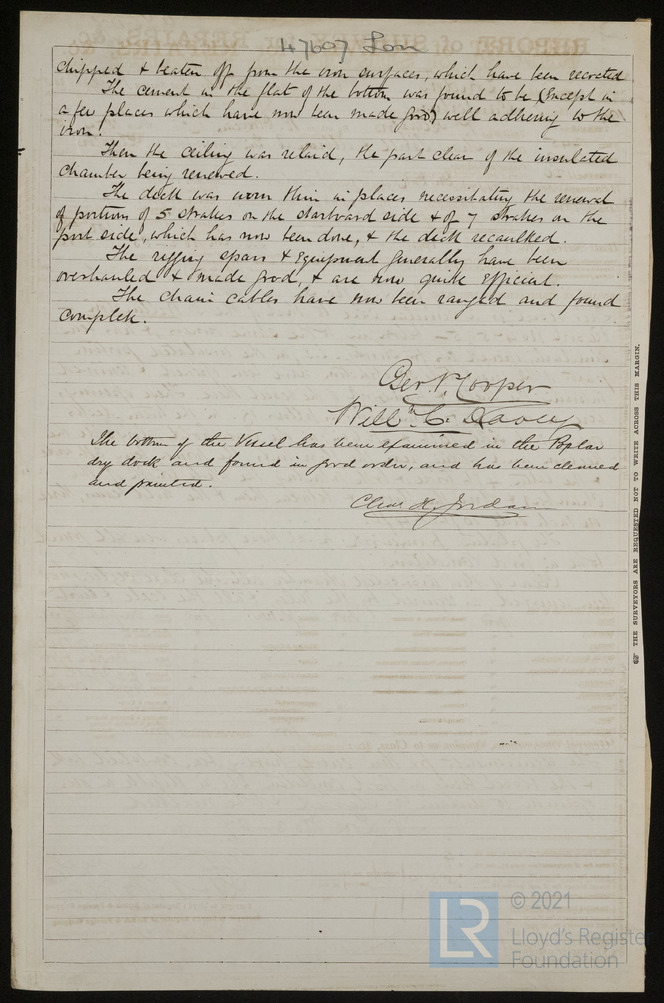 47607 Lon
chipped & beaten off from the iron surfaces, which have been recoated
The cement in the flat of the bottom was found to be (Except in
a few places which have now been made good) well adhering to the
iron.
Then the ceiling was relaid, the part clear of the insulated
chamber being renewed.
The deck was worn thin in places necessitating the renewal
of portions of 5 strakes on the starboard side & of 7 strakes on the
port side, which has now been done, & the deck recaulked.
The rigging spars & Equipment generally have been
overhauled & made good, & are now quite efficient.
The chain cables have now been ranged and found
complete.
Geo. Cooper
Will^m C. Davey
The bottom of the Vessel has been examined in the Poplar
dry dock and found in good order, and has been cleaned
and painted.
Chas H. Jordan
THE SURVEYORS ARE REQUESTED NOT TO WRITE ACROSS THIS MARGIN.
LR
© 2021
Lloyd's Register
Foundation